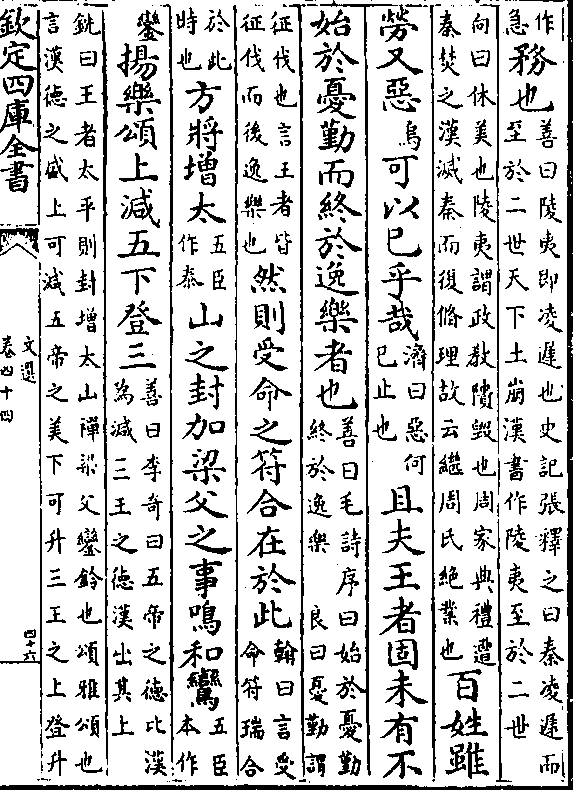 作急務也善曰陵夷即凌遲也史記張釋之曰秦凌遲而至於二世天下土崩漢書作陵夷至於二世
向曰休美也陵夷謂政教隤毀也周家典禮遭秦焚之漢滅秦而復脩理故云繼周氏絕業也百姓雖
勞又惡烏可以已乎哉濟曰惡何已止也且夫王者固未有不
始於憂勤而終於逸樂者也善曰毛詩序曰始於憂勤終於逸樂 良曰憂勤謂
征伐也言王者皆征伐而後逸樂也然則受命之符合在於此翰曰言受命符瑞合
於此時也方將增太五臣作泰山之封加梁父之事鳴和鸞五臣本作
鑾揚樂頌上減五下登三善曰李奇曰五帝之德比漢為減三王之德漢出其上
銑曰王者太平則封增太山禪梁父鑾鈴也頌雅頌也言漢德之盛上可減五帝之美下可升三王之上登升
欽定四庫全書
文選
卷四十四
四十六